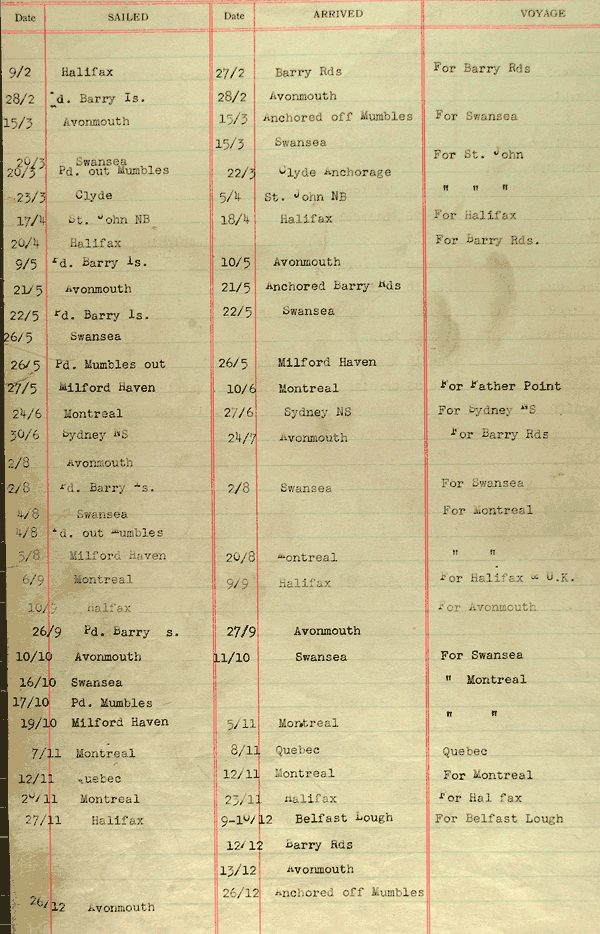 Date SAILED Date ARRIVED VOYAGE
9/2 Halifax 27/2 Barry Rds For Barry Rds
28/2 Pd. Barry Is. 28/2 Avonmouth
15/3 Avonmouth 15/3 Anchored off Mumbles For Swansea
15/3 Swansea
20/3 Swansea For St. John
20/3 Pd. out Mumbles 22/3 Clyde Anchorage
23/3 Clyde 5/4 St. John NB " " "
17/4 St. John NB 18/4 Halifax For Halifax
20/4 Halifax For Barry Rds.
9/5 Pd. Barry Is. 10/5 Avonmouth
21/5 Avonmouth 21/5 Anchored Barry Rds
22/5 Pd. Barry Is. 22/5 Swansea
26/5 Swansea
26/5 Pd. Mumbles out 26/5 Milford Haven
27/5 Milford Haven 10/6 Montreal For Father Point
24/6 Montreal 27/6 Sydney NS For Sydney NS
30/6 Sydney NS 24/7 Avonmouth For Barry Rds
2/8 Avonmouth
2/8 Pd. Barry Is. 2/8 Swansea For Swansea
4/8 Swansea For Montreal
4/8 Pd. out Mumbles
5/8 Milford Haven 20/8 Montreal " "
6/9 Montreal 9/9 Halifax For Halifax & U.K.
10/9 Halfax For Avonmouth
26/9 Pd. Barry s. 27/9 Avonmouth
10/10 Avonmouth 11/10 Swansea For Swansea
16/10 Swansea " Montreal
17/10 Pd. Mumbles
19/10 Milford Haven 5/11 Montreal " "
7/11 Montreal 8/11 Quebec Quebec
12/11 Quebec 12/11 Montreal For Montreal
20/11 Montreal 23/11 Halifax For Hal fax
27/11 Halifax 9-10/12 Belfast Lough For Belfast Lough
12/12 Barry Rds
13/12 Avonmouth
26/12 Anchored off Mumbles
26/12 Avonmouth